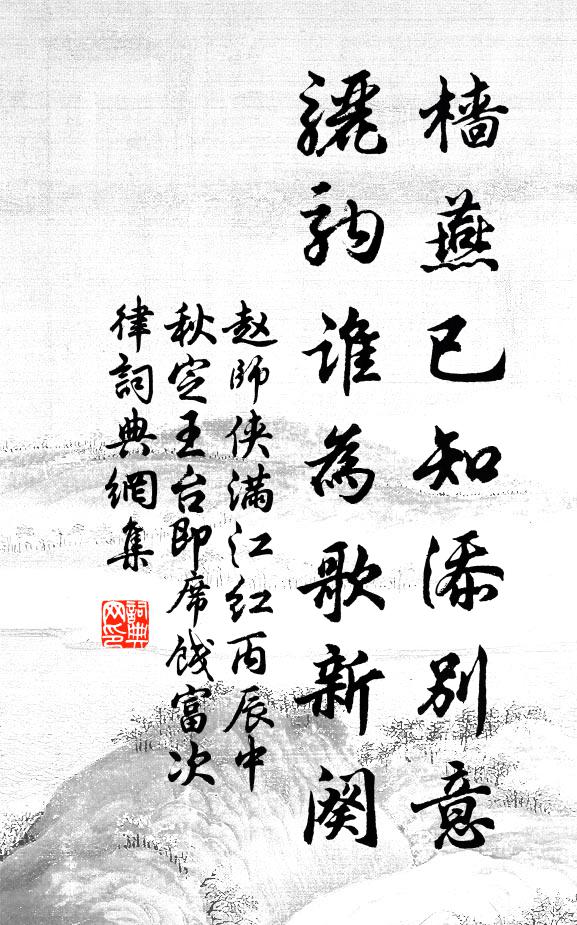 檣燕已知添別意
驪駒誰為歌新闋
赵師侠滿江红丙辰中
秋定王台即席餞富次
律詞典網集
詞典网印